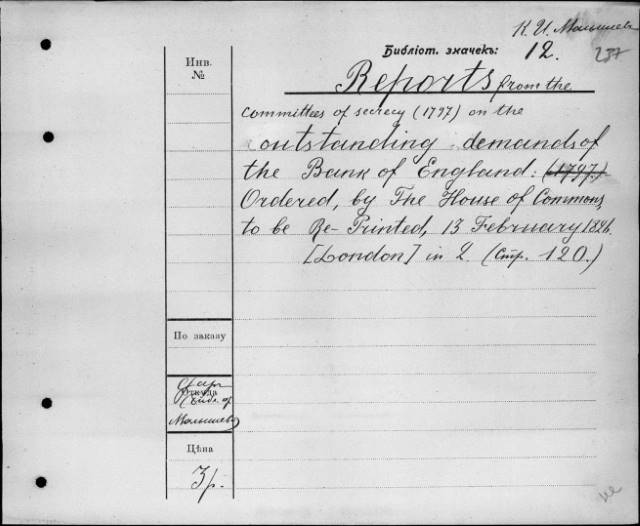 К. И. Малышев
Библіот. значекъ: 12.
237
Инв.
№
Reports from the
committees of secrecy (1797) on the
outstanding demands of
the Bank of England: (1797.)
Ordered, by The House of Commons,
to be Re-Printed, 13 February 1826.
[London] in 2. (Стр. 120.)
По заказу
Откуда
Малышева
Цѣна
3 р.